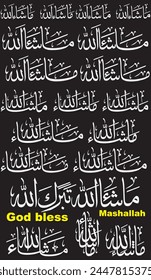 ما شاء الله ما شاء الله ما شاء الله ما شاء الله
ما شاء الله ما شاء الله ما شاء الله
ما شاء الله ما شاء الله
ما شاء الله ما شاء الله
ما شاء الله ما شاء الله ما شاء الله
ما شاء الله ما شاء الله ما شاء الله
ما شاء الله ما شاء الله
ما شاء الله تبارك الله
God bless
Mashallah
ما شاء الله ما شاء الله ما شاء الله
shutterstock
2447815375